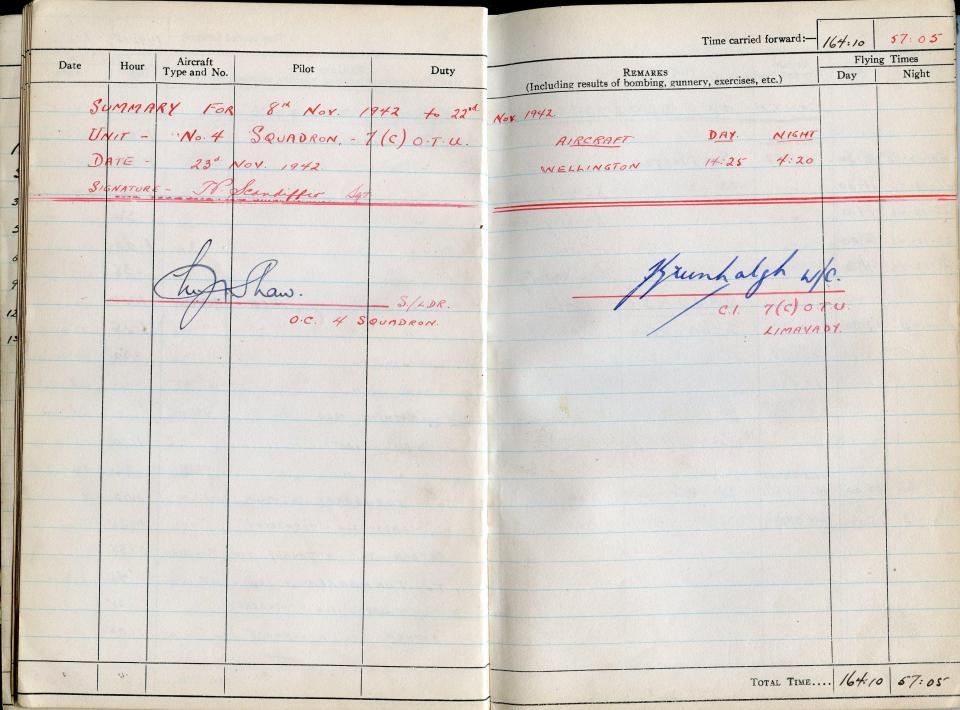 Time carried forward:— 164:10 57:05
Date Hour Aircraft Type and No. Pilot Duty
REMARKS (Including results of bombing, gunnery, exercises, etc.) Flying Times Day Night
SUMMARY FOR 8th NOV. 1942 to 22nd NOV. 1942
UNIT - No. 4 SQUADRON. - 7 (C) O.T.U.
AIRCRAFT DAY. NIGHT
DATE - 23rd NOV. 1942
WELLINGTON 14:25 4:20
SIGNATURE - Scandiffio Sgt
Shaw. S/LDR.
O.C. 4 SQUADRON.
W/C.
C.I. 7 (C) O.T.U.
LIMAVADY.
TOTAL TIME.... 164:10 57:05